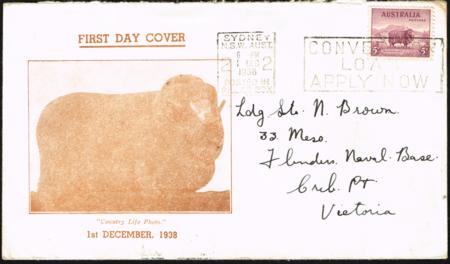 FIRST DAY COVER
SYDNEY
N.S.W. AUST.
6 PM
1 DEC
1938
2 2
AUSTRALIA
POSTAGE
5D
CONVERSION
LOAN
APPLY NOW
Ldg Sto. N. Brown.
33. Mess.
Flinders. Naval. Base.
Crib. Pt.
Victoria
"Country Life Photo."
1st DECEMBER, 1938